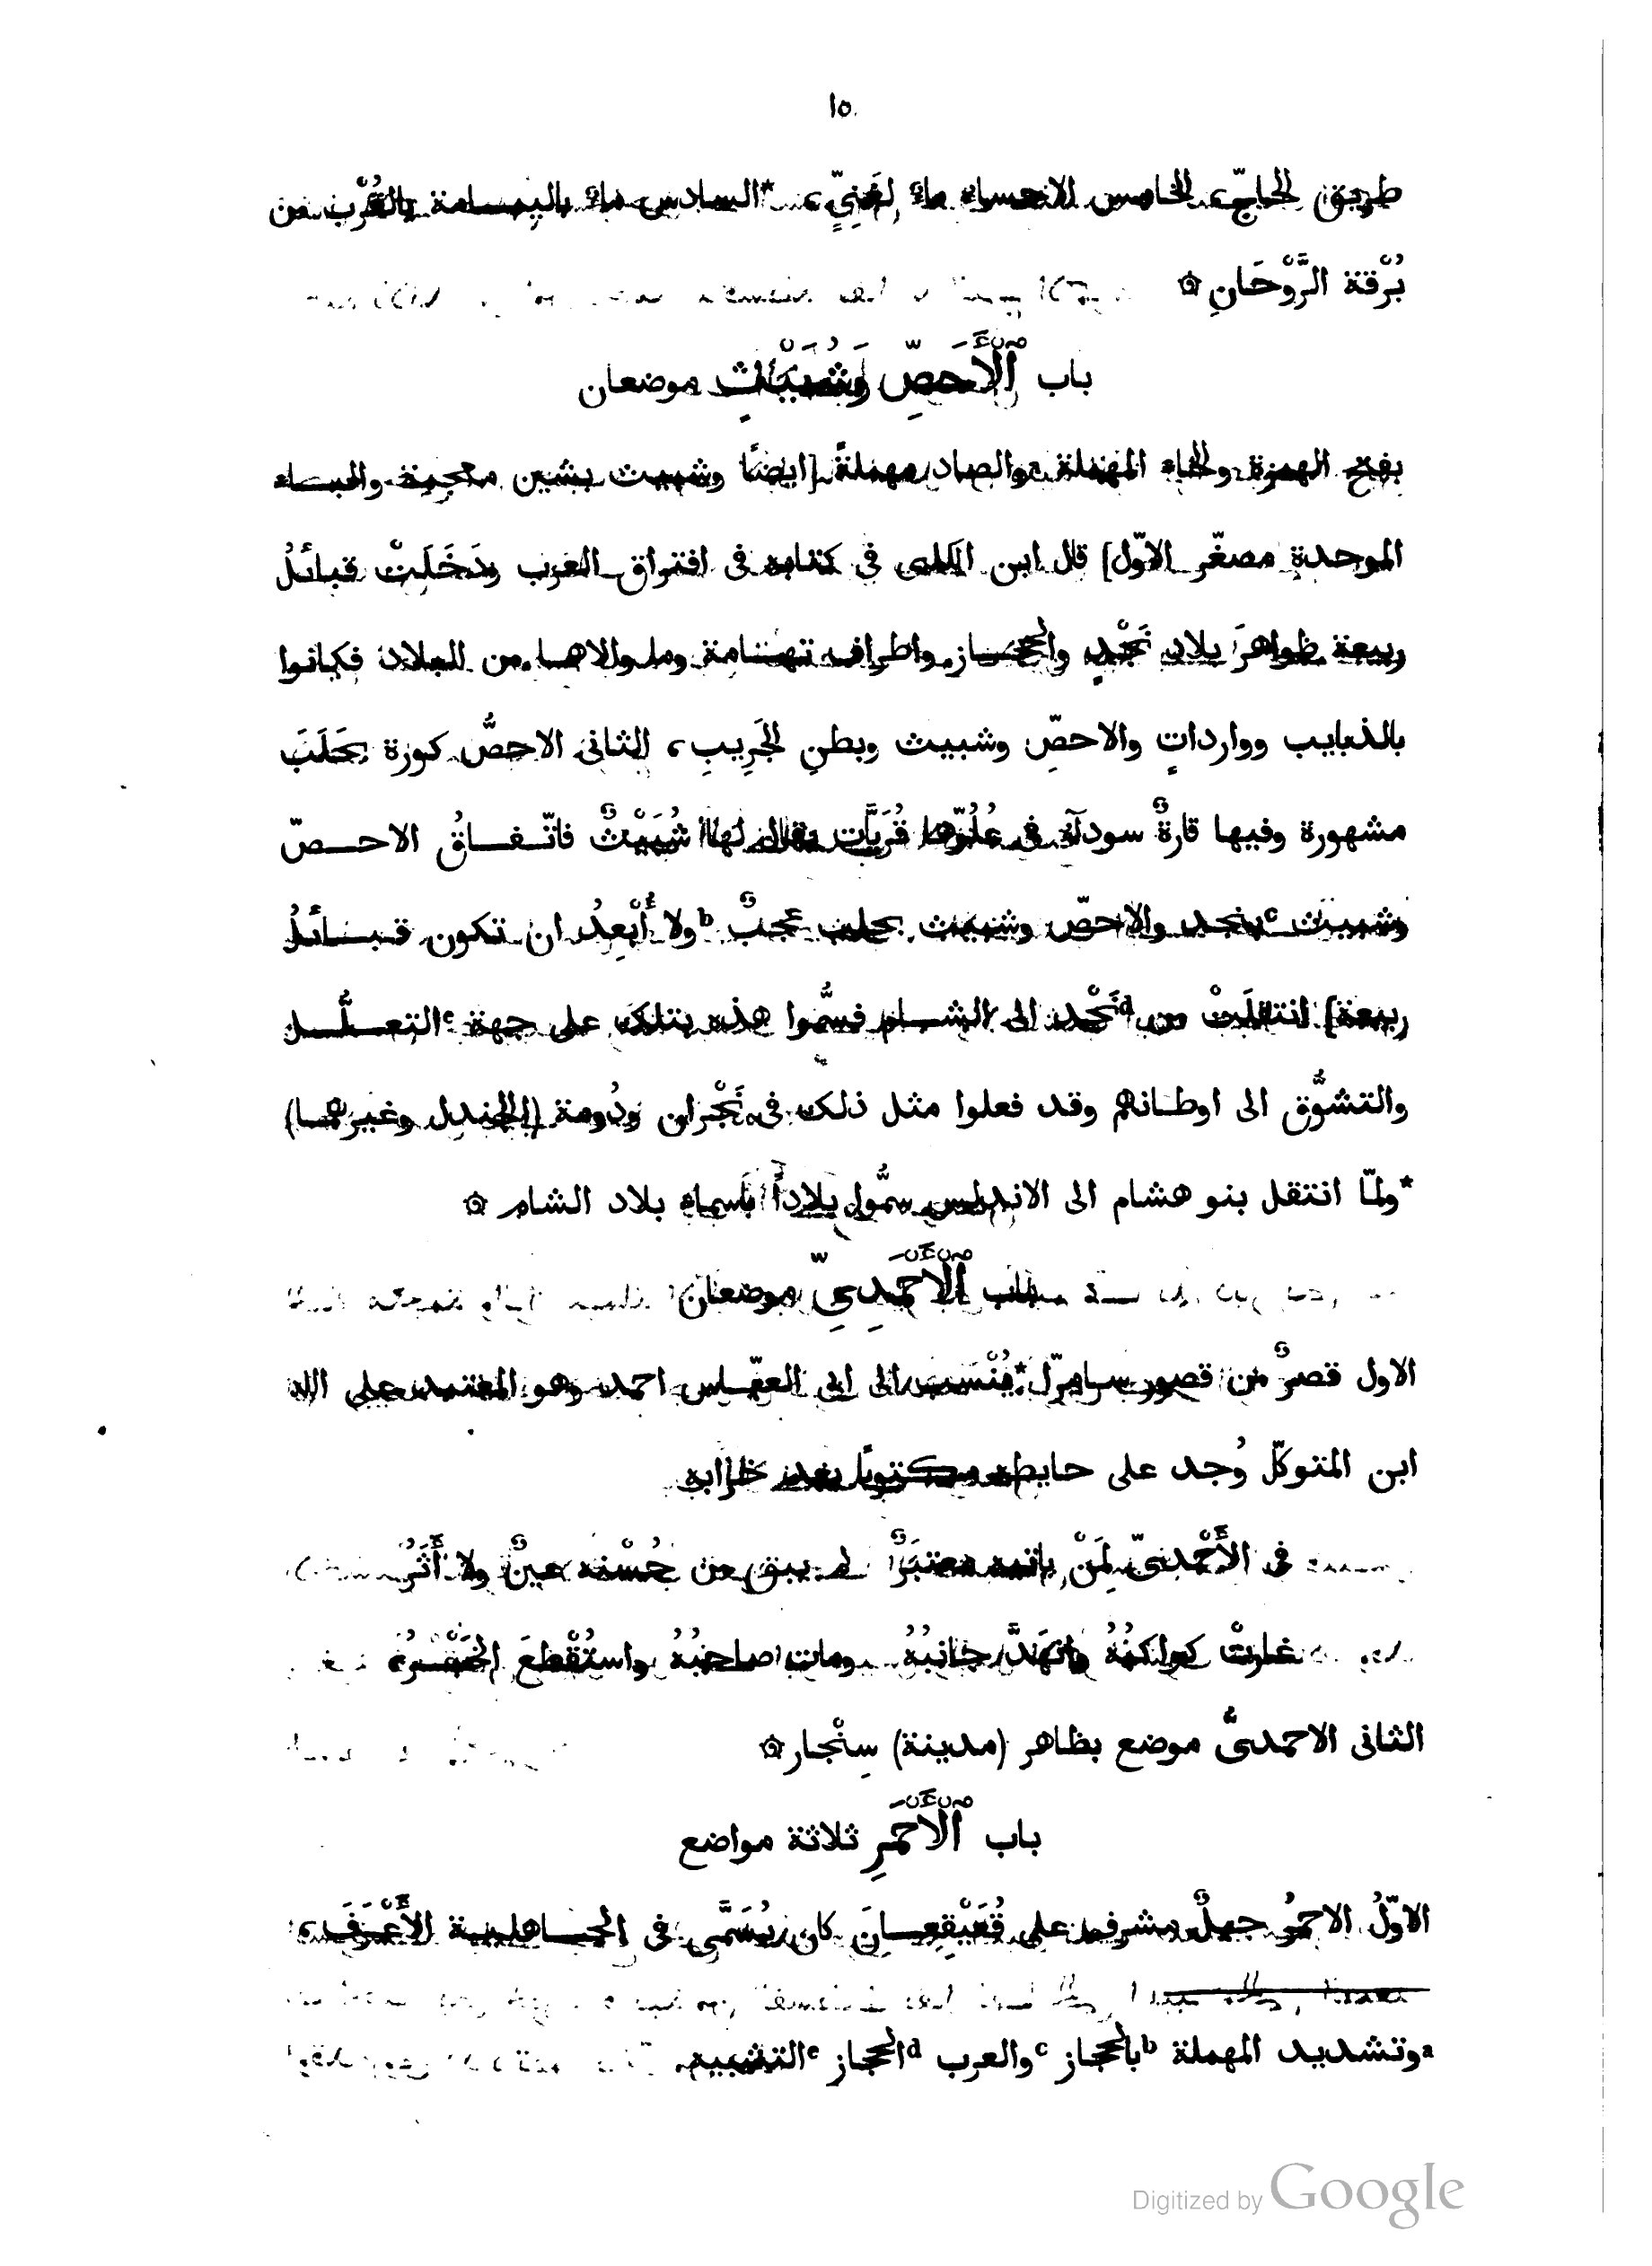 ١٥
طريق الحاجّ، الخامس الاحساء ماء لغَنِيٍّ، *السادس ماء باليمامة بالقُرْب من
بُرْقة الرَّوْحَانِ ۞
باب اَلْأَحَصِّ وَشُبَيْثٍ موضعان
بفتح الهمزة والحاء المهملة a والصاد مهملةً [ايضًا وشبيث بشين معجمة والبـاء
الموحدة مصغّر الاوّل] قال ابن الكلبى فى كتابه فى افتراق العرب ودَخَلَتْ قبائلُ
ربيعة ظواهرَ بلاد نَجْدٍ والحجـاز واطراف تهـامة وما والاهـا من البلاد فكانوا
بالذنايب وواردات والاحصّ وشبيث وبطن الجَرِيبِ، الثانى الاحصُّ كورة بحَلَبَ
مشهورة وفيها قارةٌ سودآء فى عُلُوّها قُرَيَّات يقال لها شُبَيْثٌ فاتّـفـاقُ الاحـصّ
وشبيث c بنجد والاحصّ وشبيث بحلب عجبٌ b ولا أُبْعِدُ ان تكون قـبـائلُ
ربيعة] انتقلَتْ من d نَجْد الى الشـام فسَمَّوا هذه بتلك على جهة e التعـلُّـل
والتشوُّق الى اوطانهم وقد فعلوا مثل ذلك فى نَجْران ودُومة (الجندل وغيرهمـا)
*ولمّا انتقل بنو هشام الى الاندلس سمَّوا بلاداً باسماء بلاد الشام ۞
باب اَلْأَحْمَدِىِّ موضعان
الاول قصرٌ من قصور سامرّا *مُنْسَب الى ابى العبّاس احمد وهو المعتمد على الله
ابن المتوكّل وُجد على حايطه مكتوبًا بعد خرابه
فى الأَحْمَدىّ لِمَنْ ياتيه معتبَرٌ لم يبق من حُسْنه عينٌ ولا أَثَرُ
غارتْ كواكبُهُ وانهَدَّ جانبُهُ ومات صاحبُهُ واستُفْظِعَ الخَبَرُ
الثانى الاحمدىُّ موضع بظاهر (مدينة) سِنْجار ۞
باب اَلْأَحْمَرِ ثلاثة مواضع
الاوّلُ الاحمرُ جبلٌ مشرف على قُعَيْقِعـانَ كان يُسَمَّى فى الجـاهلـيـة الأَعْرَفَ،
a وتشديد المهملة b بالحجاز c والعرب d الحجاز e التشبيه
Digitized by Google